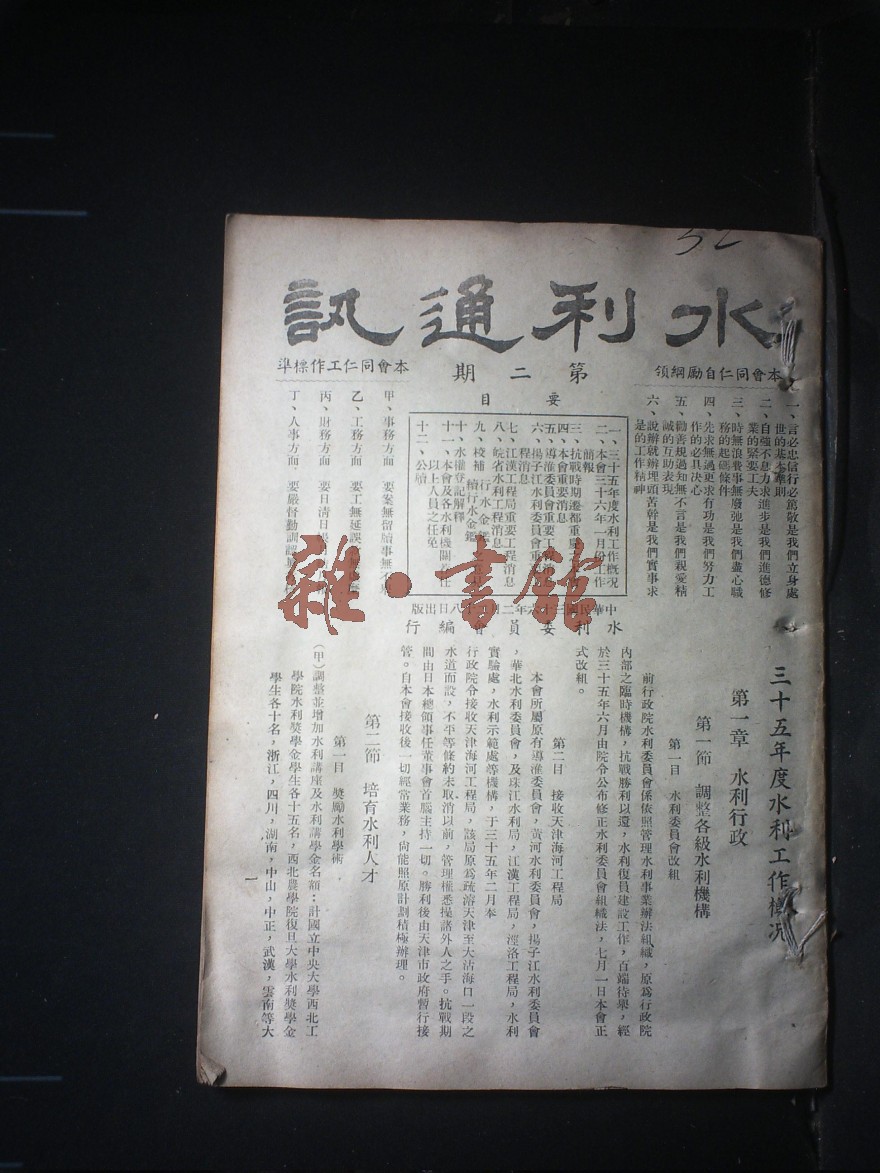 52
水利通訊
第二期
本會同仁自勵綱領
一、言必忠信行必篤敬是我們立身處
世的基本準則
二、自強不息力求進步是我們進德修
業的緊要工夫
三、時無浪費事無廢弛是我們盡心職
務的起碼條件
四、先求無過更求有功是我們努力工
作的必具決心
五、勸善規過知無不言是我們親愛精
誠的互助表現
六、說辦就辦埋頭苦幹是我們實事求
是的工作精神
要目
一、三十五年度水利工作概況
二、本會三十六年一月份工作
簡報
三、抗戰時期遷都重慶
四、本會重要消息
五、導淮委員會重要工程消息
六、揚子江水利委員會重要
程消息
七、江漢工程局重要工程消息
八、皖省水利工程消息
九、校補 行水金
續行水金鑑
十、水權登記解釋
十一、本會及各水利機關荐任
以上人員之任免
十二、公牘
中華民國三十六年二月十八日出版
水利委員會編行
本會同仁工作標準
甲、事務方面 要案無留牘事無不
乙、工務方面 要工無延誤
丙、財務方面 要日清日
丁、人事方面 要嚴督勤訓
雜·書館
三十五年度水利工作概況
第一章 水利行政
第一節 調整各級水利機構
第一目 水利委員會改組
前行政院水利委員會係依照管理水利事業辦法組織，原爲行政院
內部之臨時機構，抗戰勝利以還，水利復員建設工作，百端待舉，經
於三十五年六月由院令公布修正水利委員會組織法，七月一日本會正
式改組。
第二目 接收天津海河工程局
本會所屬原有導淮委員會，黃河水利委員會，揚子江水利委員會
，華北水利委員會，及珠江水利局，江漢工程局，涇洛工程局，水利
實驗處，水利示範處等機構，于三十五年二月奉
行政院令接收天津海河工程局，該局原爲疏濬天津至大沽海口一段之
水道而設，不平等條約未取消以前，管理權悉操諸外人之手。抗戰期
間由日本總領事任董事會首腦主持一切。勝利後由天津市政府暫行接
管。自本會接收後一切經常業務，尙能照原計劃積極辦理。
第二節 培育水利人才
第一目 獎勵水利學術
（甲）調整並增加水利講座及水利講學金名額：計國立中央大學西北工
學院水利獎學金學生各十五名，西北農學院復旦大學水利獎學金
學生各十名，浙江，四川，湖南，中山，中正，武漢，雲南等大
一